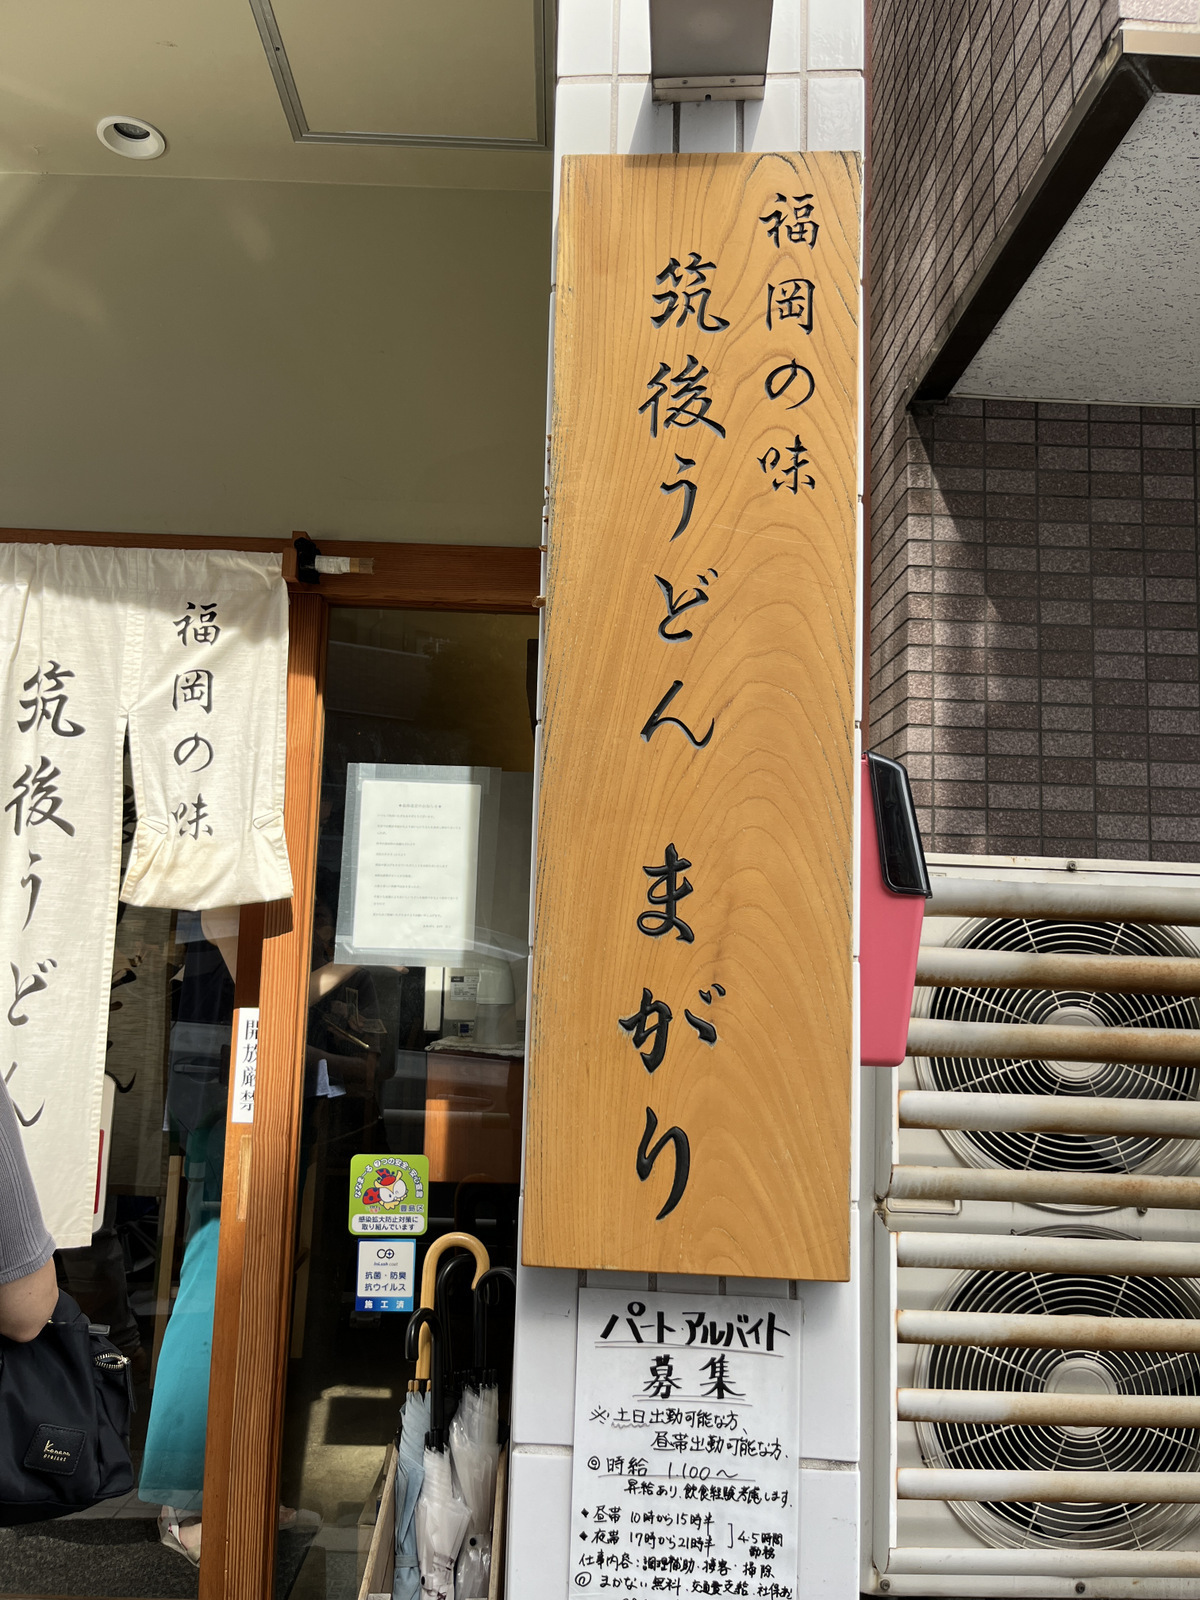 福岡の味
筑後うどん まがり
福岡の味
筑後うどん
開放厳禁
豊島区
感染拡大防止対策に
取り組んでいます
抗菌・防臭
抗ウイルス
施工済
パート・アルバイト
募集
※土日出勤可能な方、
昼帯出勤可能な方、
◎時給 1,100〜
昇給あり、飲食経験考慮します。
◆昼帯 10時から15時半
◆夜帯 17時から21時半
4.5時間
勤務
仕事内容:調理補助・接客・掃除
まかない無料、交通費支給、社保あり